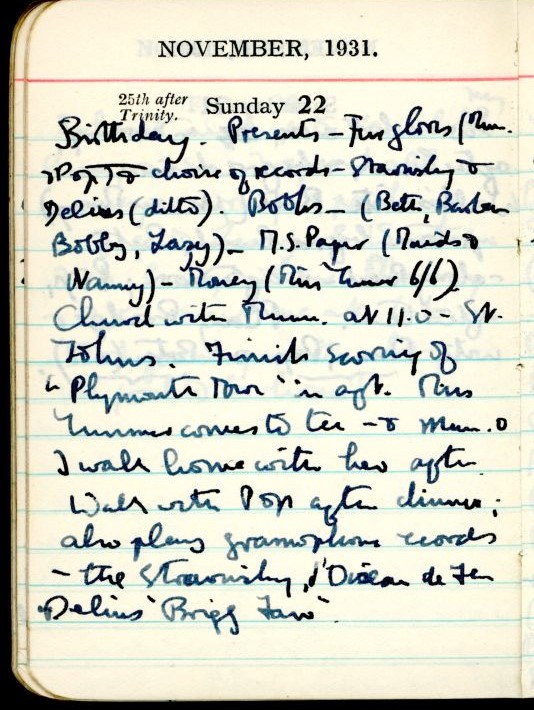 NOVEMBER, 1931.
25th after Trinity. Sunday 22
Birthday. Presents – Fur gloves (Mum.
& Pop) & choice of records – Stravinsky &
Delius (ditto). Books – (Beth, Barbara
Bobby, Lazy) – M.S. Paper (Maids &
Nanny) – Money (Miss Turner 6/6).
Church with Mum. at 11.0 – St.
Johns. Finish scoring of
"Plymouth Town" in aft. Miss
Turner comes to tea – & Mum. &
I walk home with her after.
Walk with Pop after dinner;
also play gramophone records
– the Stravinsky, 'Oiseau de Feu
Delius 'Brigg Fair'.